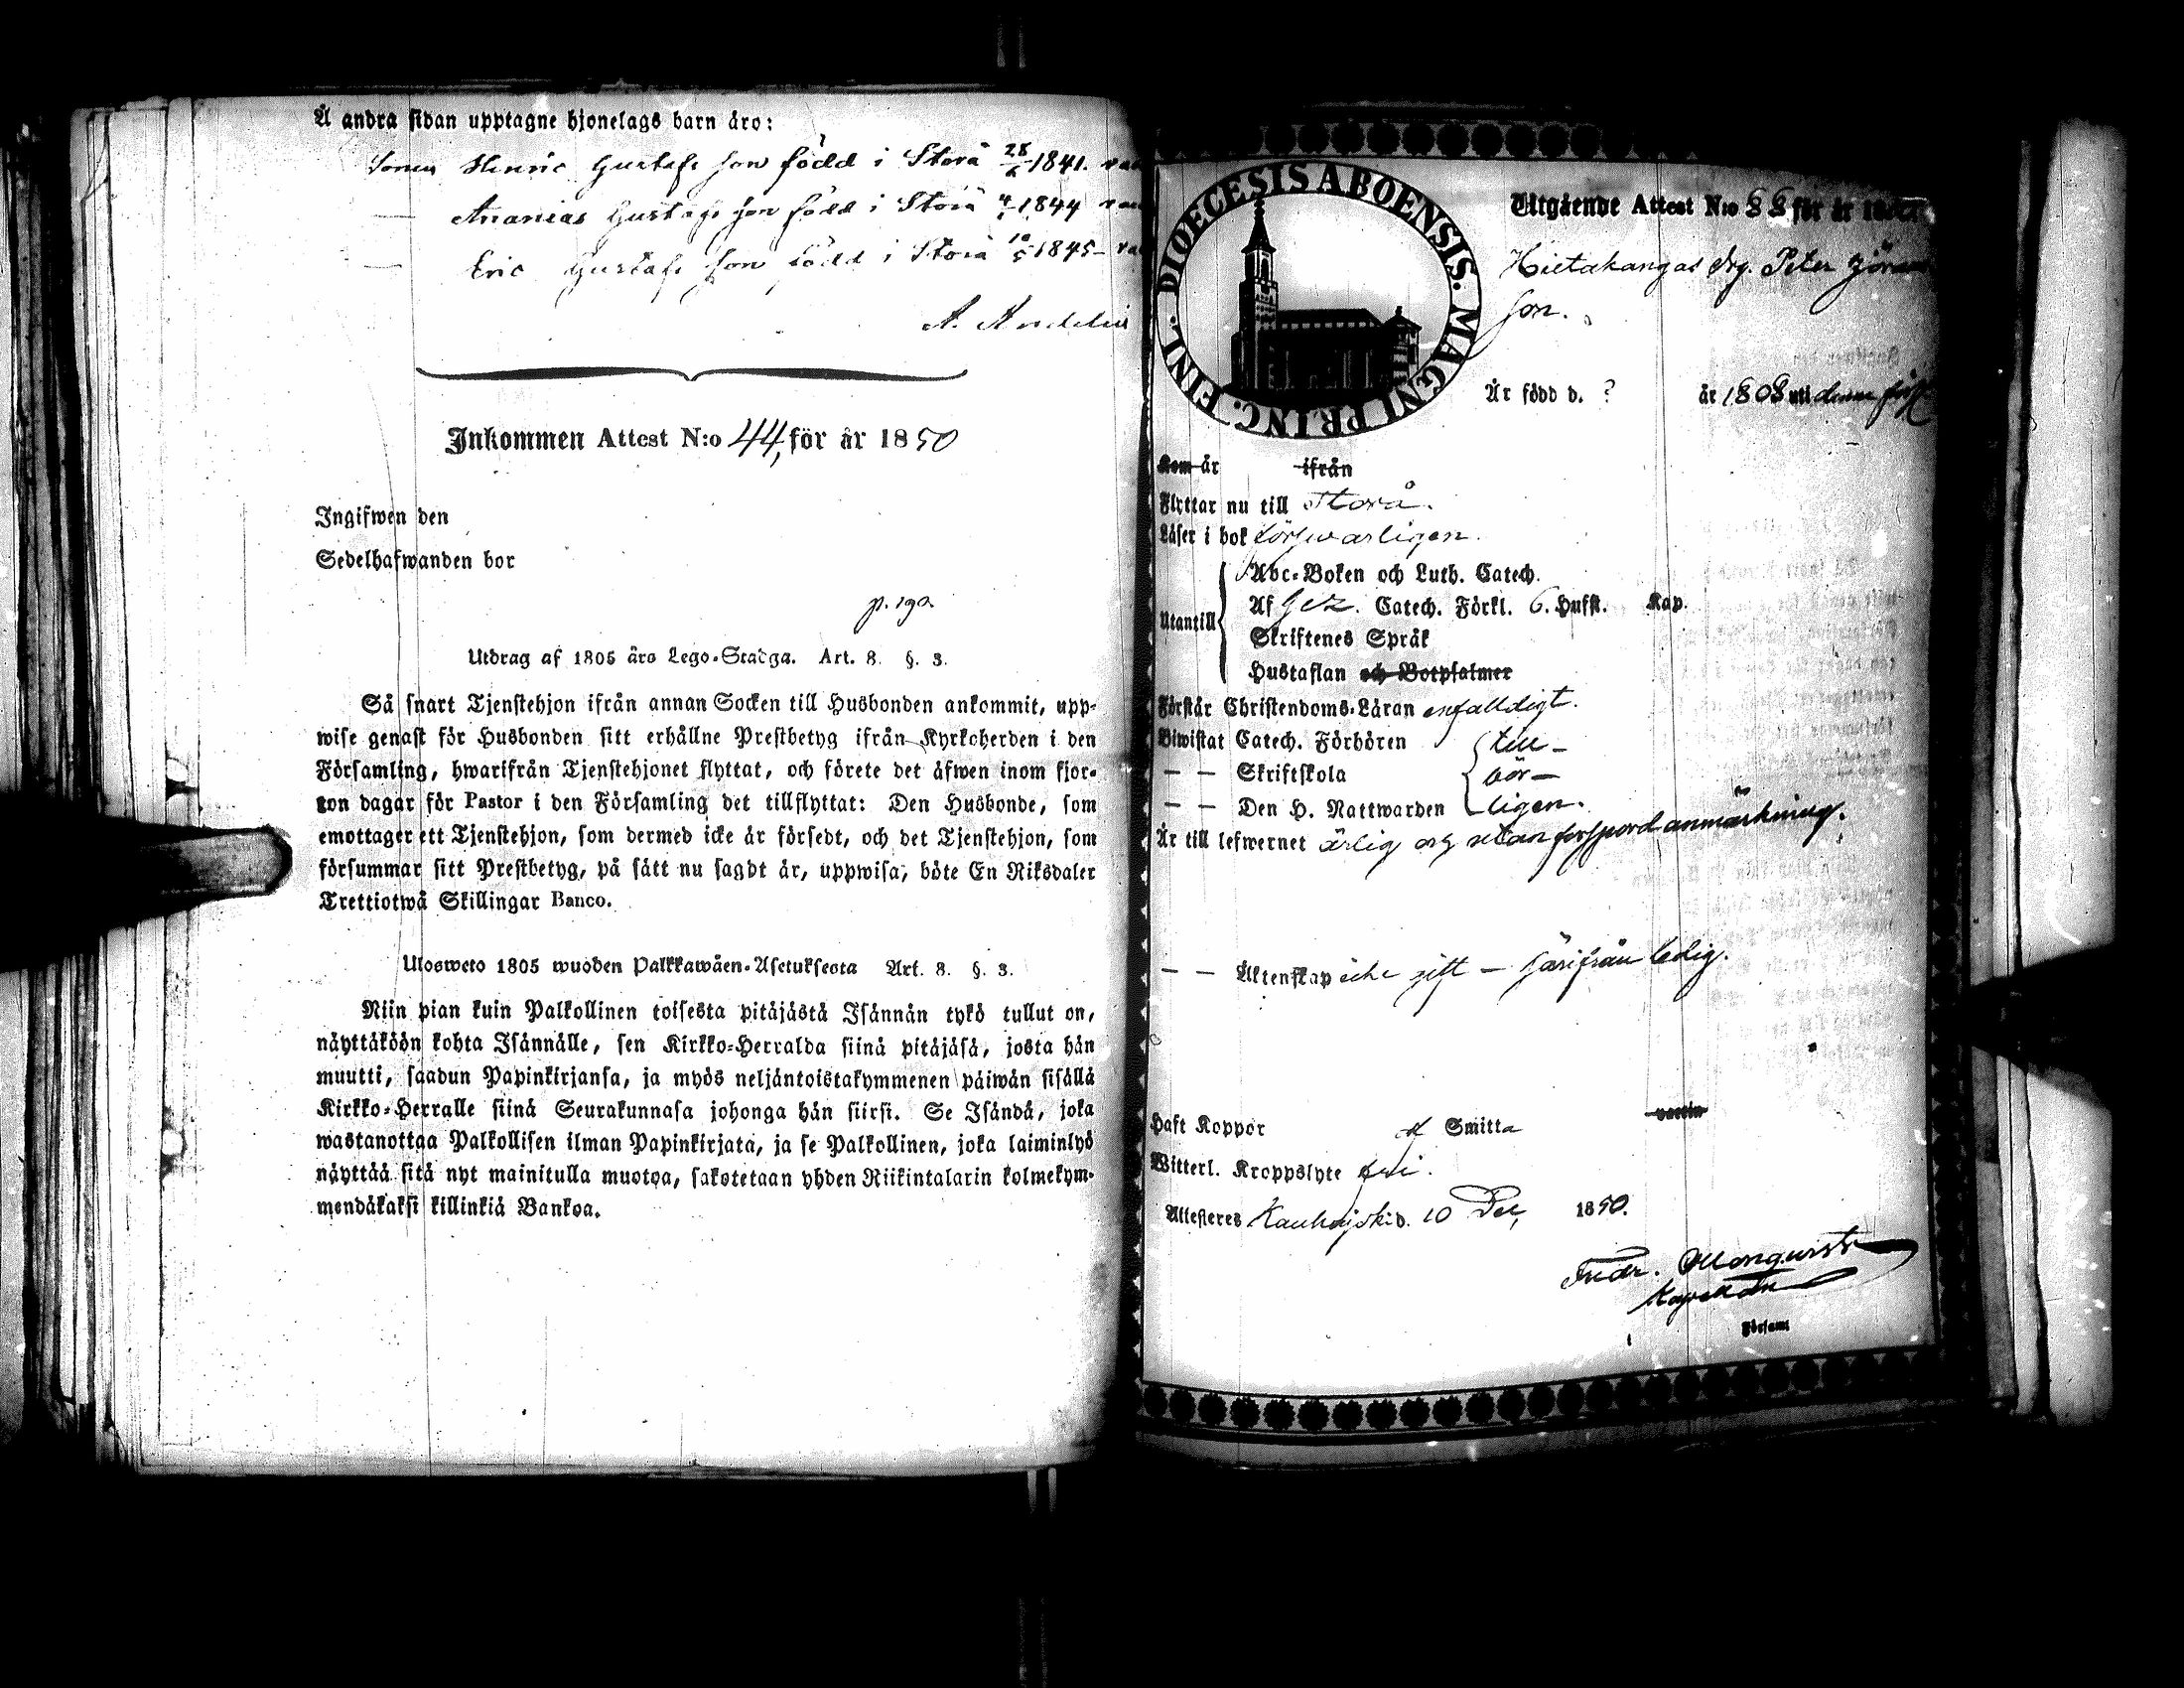 Å andra sidan upptagne hjonelags barn äro:
Sonen Henric Gustafs son född i Storå 28/6 1841.
— Ananias Gustafs son född i Storå 1844
— Eric Gustafs son född i Storå 10/5 1845 —
A.
Inkommen Attest N:o 44, för år 1850
Ingifwen den
Sedelhafwanden bor
p. 190.
Utdrag af 1805 års Lego-Stadga. Art. 8. §. 3.
Så snart Tjenstehjon ifrån annan Socken till Husbonden ankommit, upp-
wise genast för Husbonden sitt erhållne Prestbetyg ifrån Kyrkoherden i den
Församling, hwarifrån Tjenstehjonet flyttat, och förete det äfwen inom fjor-
ton dagar för Pastor i den Församling det tillflyttat: Den Husbonde, som
emottager ett Tjenstehjon, som dermed icke är försedt, och det Tjenstehjon, som
försummar sitt Prestbetyg, på sätt nu sagdt är, uppwisa, böte En Riksdaler
Trettiotwå Skillingar Banco.
Ulosweto 1805 wuoden Palkkawäen-Asetuksesta Art. 8. §. 3.
Niin pian kuin Palkollinen toisesta pitäjästä Isännän tykö tullut on,
näyttäköön kohta Isännälle, sen Kirkko-Herralda siinä pitäjäsä, josta hän
muutti, saadun Papinkirjansa, ja myös neljäntoistakymmenen päiwän sisällä
Kirkko-Herralle siinä Seurakunnasa johonga hän siirsi. Se Isändä, joka
wastanottaa Palkollisen ilman Papinkirjata, ja se Palkollinen, joka laiminlyö
näyttää sitä nyt mainitulla muotoa, sakotetaan yhden Riikintalarin kolmekym-
mendäkaksi killinkiä Bankoa.
DIOECESIS ABOENSIS. MAGNI PRINC. FINL.
Utgående Attest N:o 88 för år
Hietakangas drg. Peter Göran
son.
Är född d. ? år 1808 uti denna
Kom år ifrån
Flyttar nu till Storå.
Läser i bok försvarligen.
Utantill
Abc-Boken och Luth. Catech.
Af Gez. Catech. Förkl. 6. Hufst. Kap.
Skriftenes Språk
Hustaflan och Botpsalmer
Förstår Christendoms-Läran enfalldigt.
Biwistat Catech. Förhören till-
— — Skriftskola bör-
— — Den H. Nattwarden ligen.
Är till lefwernet ärlig och utan försport anmärkning.
— — Äktenskap icke gift — härifrån ledig.
Haft Koppor af Smitta
Witterl. Kroppslyte fri.
Attesteres Kauhajoki d. 10 Dec, 1850.
Fredr. Monquist
Kapellan
Församl